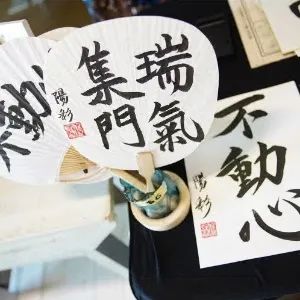 瑞氣
集門
陽彩
不動心
陽彩